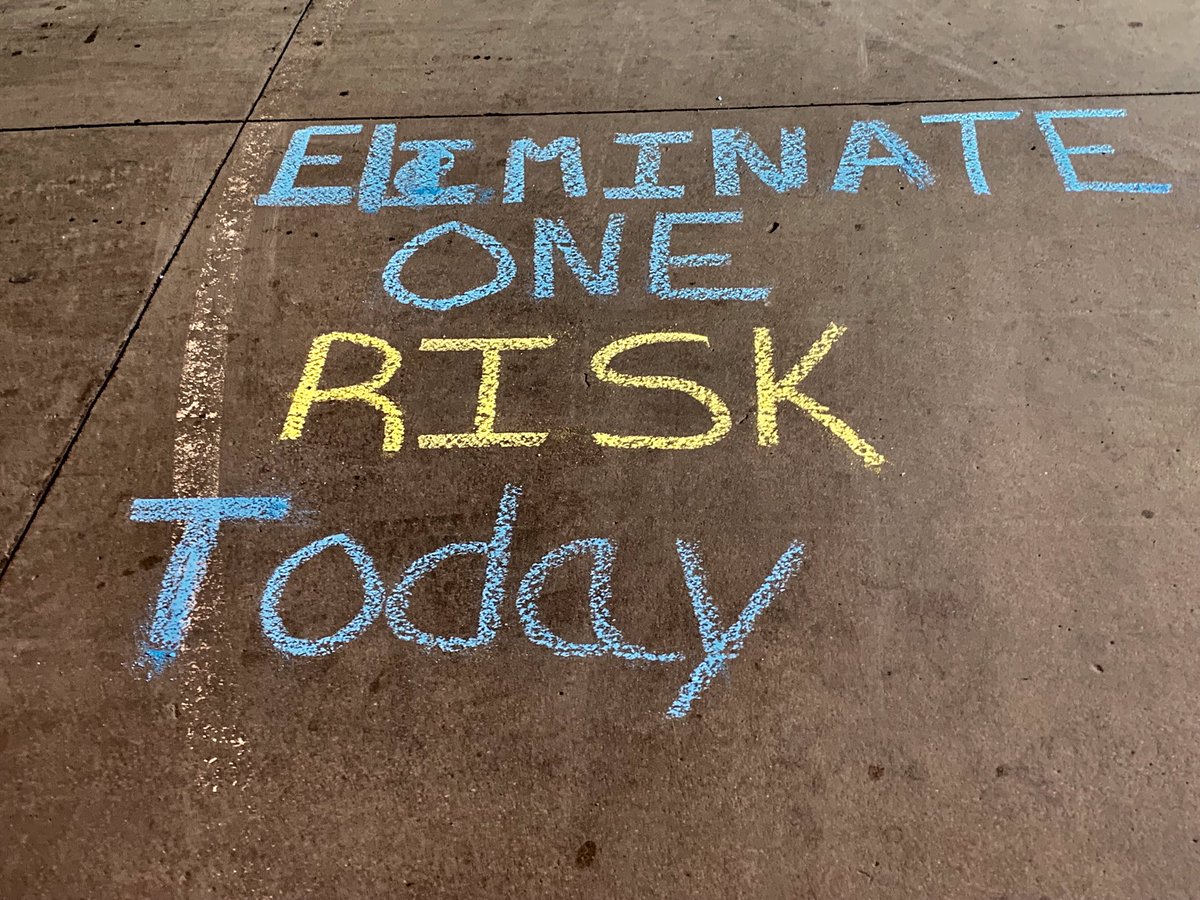 ELIMINATE
ONE
RISK
Today